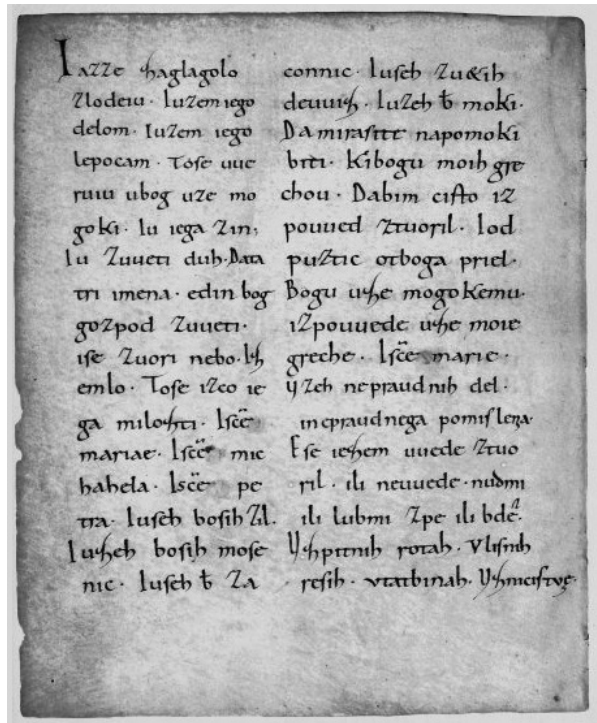 Iazze zaglagolo
zlodeiu. Iuzem iego
delom. Iuzem iego
lepocam. Tose uue
ruiu ubog uze mo
goki. Iu iega zin,
Iu zuueti duh. Data
tri imena. edin bog
gozpod zuueti.
ise zuori nebo. Izſ
emlo. Tose izco ie
ga miloſti. Isce
mariae. Isce mic
hahela. Isce pe
tra. Iuseh bosih zil.
Iuzeh bosih mose
nic. Iuseh b za
connic. Iuseh zu&ih
deuuiz. Iuzeh b moki.
Da mi rasite napomoki
biti. Kibogu moih gre
chou. Dabim cisto iz
pouued ztuoril. Iod
puztic otboga priel.
Bogu uze mogokemu.
izpouuede uze moie
greche. Isce marie.
uzeh nepraudnih del.
inepraudnega pomislena.
Ese iezem uuede ztuo
ril. ili neuuede. nudmi
ili lubmi zpe ili bde.
Uzpitnih rotah. Vlisnih
resih. vtatbinah. Uznicistve.